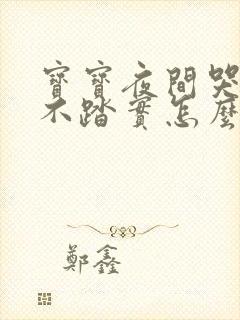 寶寶夜間哭
不踏實怎麼
鄭鑫